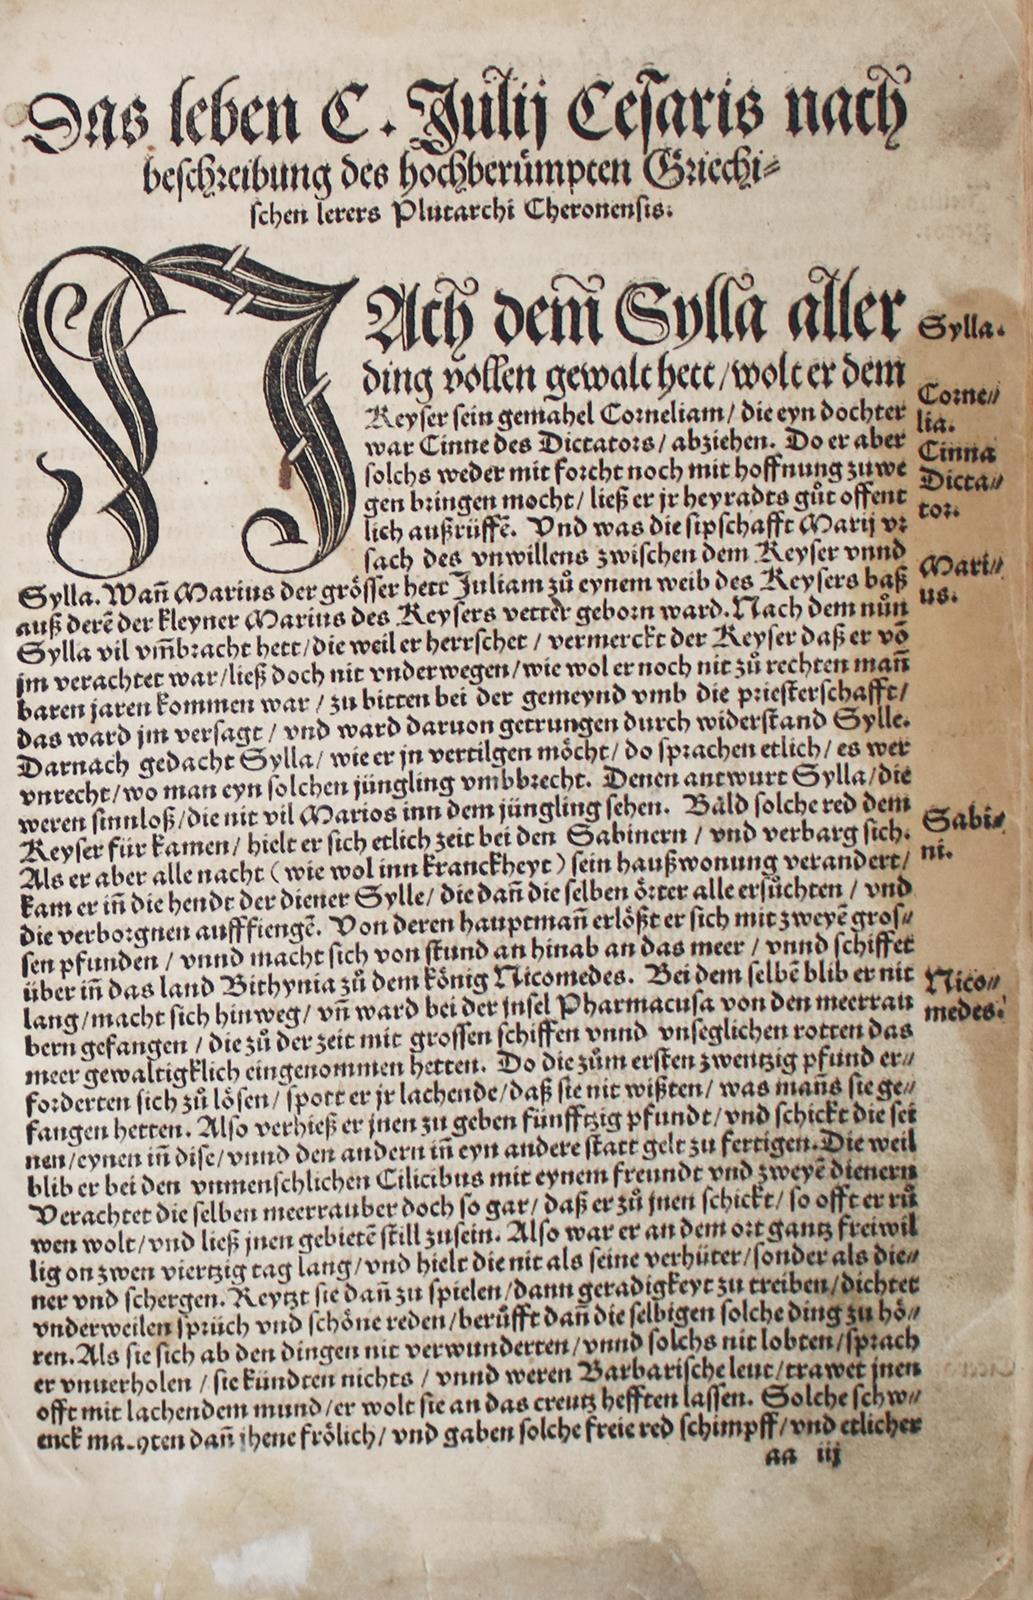 Das leben C. Julij Cesaris nach
beschreibung des hochberümpten Griechi⸗
schen lerers Plutarchi Cheronensis.
NAch dem̃ Sylla aller
ding vollen gewalt hett/wolt er dem
Keyser sein gemahel Corneliam/ die eyn dochter
war Cinne des Dictators/ abziehen. Do er aber
solchs weder mit forcht noch mit hoffnung zuwe
gen bringen mocht/ ließ er jr heyradts gůt offent
lich außrüffẽ. Vnd was die sipschafft Marij vr
sach des vnwillens zwischen dem Keyser vnnd
Sylla. Wañ Marius der grösser hett Juliam zů eynem weib des Keysers baß
auß derẽ der kleyner Marius des Keysers vetter geborn ward. Nach dem nůn
Sylla vil vm̃bracht hett/die weil er herrschet/ vermerckt der Keyser daß er võ
jm verachtet war/ließ doch nit vnderwegen/wie wol er noch nit zů rechten mañ
baren jaren kommen war/ zu bitten bei der gemeynd vmb die priesterschafft/
das ward jm versagt/ vnd ward daruon getrungen durch widerstand Sylle.
Darnach gedacht Sylla/ wie er jn vertilgen möcht/ do sprachen etlich/ es wer
vnrecht/wo man eyn solchen jüngling vmbbrecht. Denen antwurt Sylla/die
weren sinnloß/die nit vil Marios inn dem jüngling sehen. Bald solche red dem
Keyser für kamen/ hielt er sich etlich zeit bei den Sabinern/ vnd verbarg sich.
Als er aber alle nacht (wie wol inn kranckheyt) sein haußwonung verandert/
kam er iñ die hendt der diener Sylle/ die dañ die selben örter alle ersůchten/ vnd
die verborgnen aufffiengẽ. Von deren hauptmañ erlößt er sich mit zweyẽ gros⸗
sen pfunden/ vnnd macht sich von stund an hinab an das meer/ vnnd schiffet
über iñ das land Bithynia zů dem könig Nicomedes. Bei dem selbẽ blib er nit
lang/macht sich hinweg/ vñ ward bei der jnsel Pharmacusa von den meerrau
bern gefangen/ die zů der zeit mit grossen schiffen vnnd vnseglichen rotten das
meer gewaltigklich eingenommen hetten. Do die zům ersten zwentzig pfund er⸗
forderten sich zů lösen/ spott er jr lachende/daß sie nit wißten/ was mañs sie ge⸗
fangen hetten. Also verhieß er jnen zu geben fünfftzig pfundt/vnd schickt die sei
nen/eynen iñ dise/vnnd den andern iñ eyn andere statt gelt zu fertigen. Die weil
blib er bei den vnmenschlichen Cilicibus mit eynem freundt vnd zweyẽ dienern
Verachtet die selben meerrauber doch so gar/ daß er zů jnen schickt/ so offt er rů
wen wolt/vnd ließ jnen gebietẽ still zusein. Also war er an dem ort gantz freiwil
lig on zwen viertzig tag lang/vnd hielt die nit als seine verhüter/sonder als die⸗
ner vnd schergen. Reytzt sie dañ zu spielen/dann geradigkeyt zu treiben/dichtet
vnderweilen sprüch vnd schöne reden/berůfft dañ die selbigen solche ding zu hö⸗
ren. Als sie sich ab den dingen nit verwunderten/vnnd solchs nit lobten/sprach
er vnuerholen/ sie kündten nichts/ vnnd weren Barbarische leut/trawet jnen
offt mit lachendem mund/er wolt sie an das creutz hefften lassen. Solche schw⸗
enck machten dañ jhene frölich/ vnd gaben solche freie red schimpff/vnd etlicher
aa iij
Sylla.
Corne⸗
lia.
Cinna
Dicta⸗
tor.
Mari⸗
us.
Sabi⸗
ni.
Nico⸗
medes.